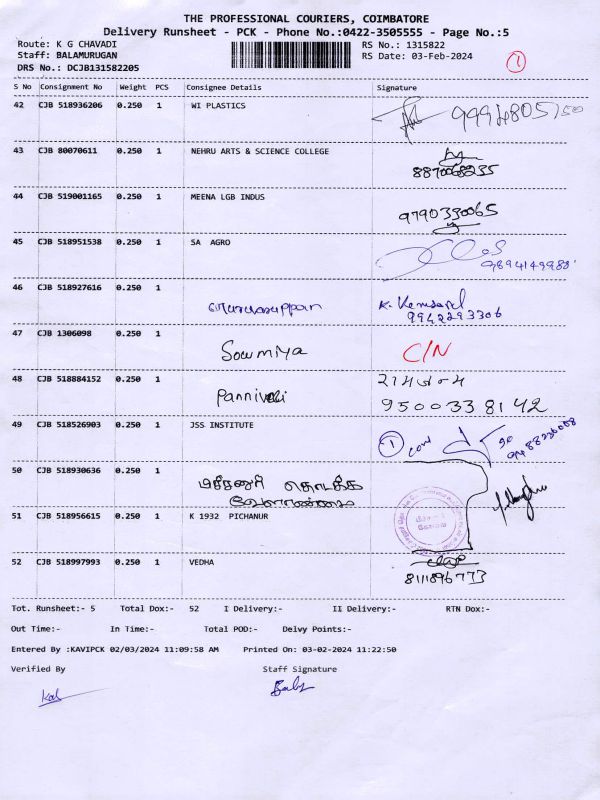 THE PROFESSIONAL COURIERS, COIMBATORE
Delivery Runsheet - PCK - Phone No.:0422-3505555 - Page No.:5
Route: K G CHAVADI RS No.: 1315822
Staff: BALAMURUGAN RS Date: 03-Feb-2024
DRS No.: DCJB131582205
1
S No Consignment No Weight PCS Consignee Details Signature
42 CJB 518936206 0.250 1 WI PLASTICS 9994805750
43 CJB 80070611 0.250 1 NEHRU ARTS & SCIENCE COLLEGE
8870068235
44 CJB 519001165 0.250 1 MEENA LGB INDUS
9790330065
45 CJB 518951538 0.250 1 SA AGRO
9894149988
46 CJB 518927616 0.250 1
9942293306
47 CJB 1306098 0.250 1
Sowmiya C/N
48 CJB 518884152 0.250 1
9500338142
49 CJB 518526903 0.250 1 JSS INSTITUTE
1
50 CJB 518930636 0.250 1
51 CJB 518956615 0.250 1 K 1932 PICHANUR
52 CJB 518997993 0.250 1 VEDHA
8111896773
Tot. Runsheet:- 5 Total Dox:- 52 I Delivery:- II Delivery:- RTN Dox:-
Out Time:- In Time:- Total POD:- Delvy Points:-
Entered By :KAVIPCK 02/03/2024 11:09:58 AM Printed On: 03-02-2024 11:22:50
Verified By Staff Signature